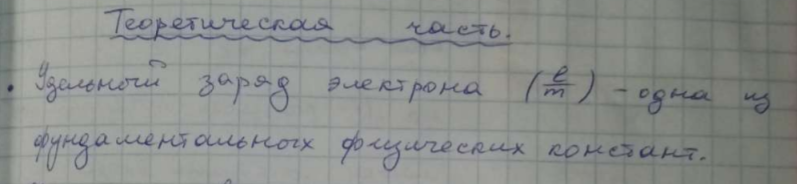 Теоретическая часть.
• Удельный заряд электрона (e/m) – одна из
фундаментальных физических констант.